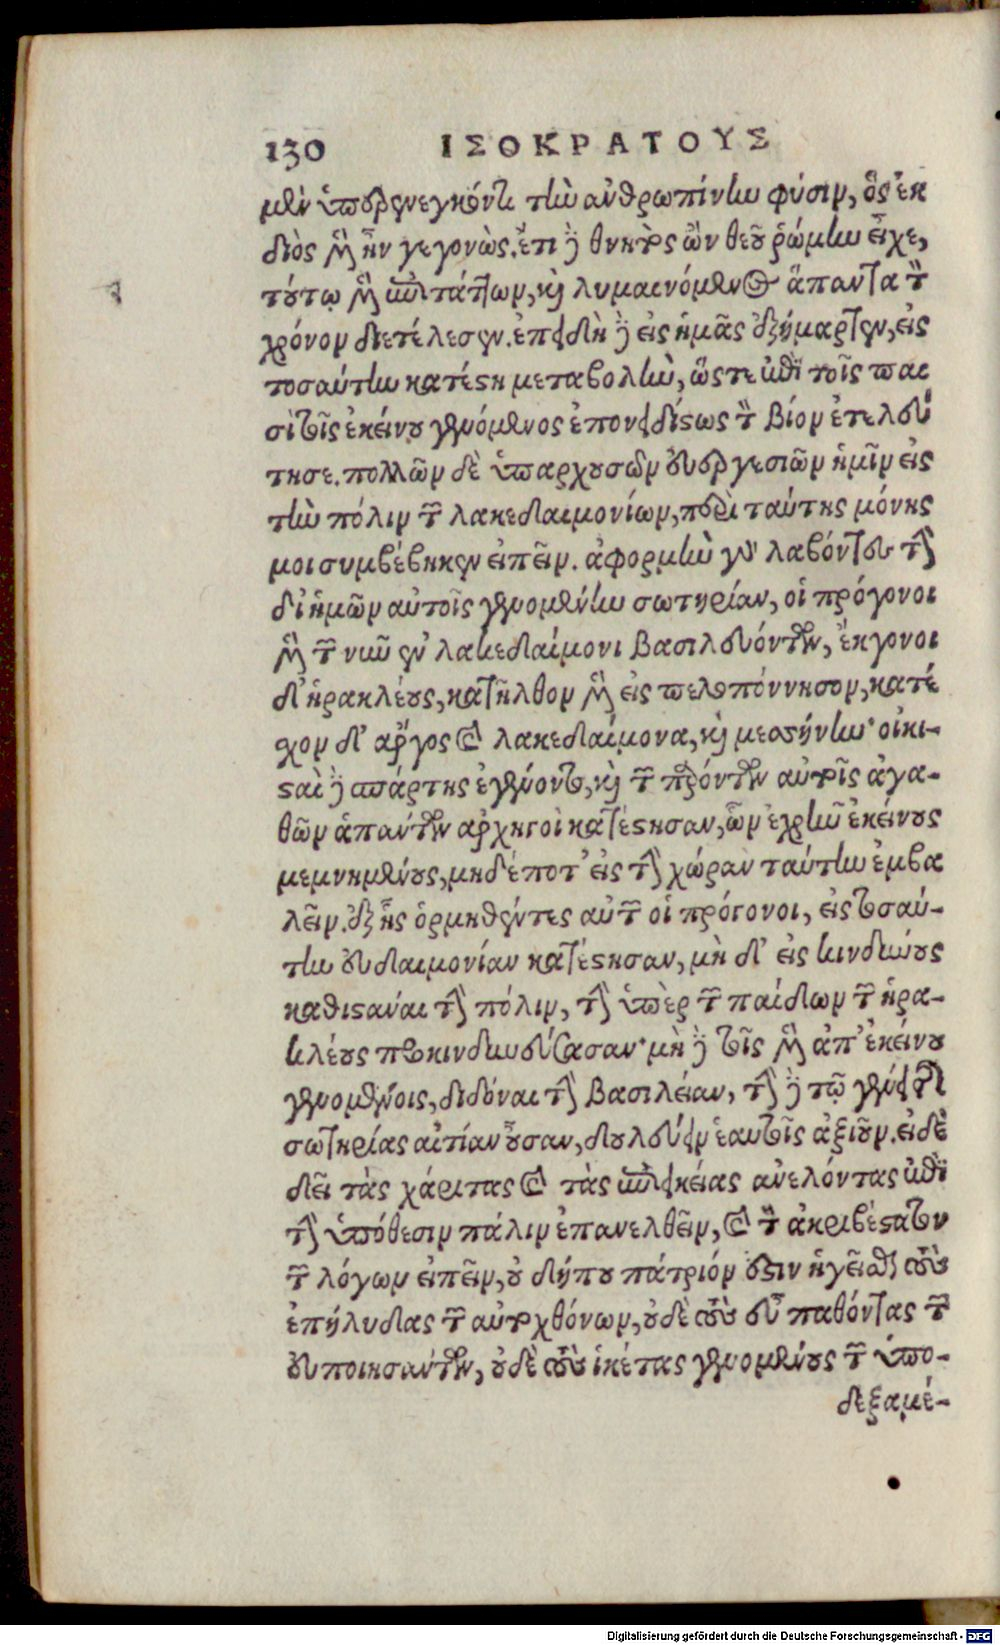 130 ΙΣΟΚΡΑΤΟΥΣ
μὲν ὑπερενεγκόντι τὴν ἀνθρωπίνην φύσιν, ὃς ἐκ
διὸς μὲν ἦν γεγονὼς. ἔτι δὲ θνητὸς ὢν θεοῦ ῥώμην εἶχε,
τούτῳ μὲν ἐπιτάττων, καὶ λυμαινόμενος ἅπαντα τὸν
χρόνον διετέλεσεν. ἐπειδὴ δὲ εἰς ἡμᾶς ἐξήμαρτεν, εἰς
τοσαύτην κατέστη μεταβολὴν, ὥστε ἐπὶ τοῖς παι
σὶ τοῖς ἐκείνου γενόμενος ἐπονειδίστως τὸν βίον ἐτελεύ
τησε. πολλῶν δὲ ὑπαρχουσῶν εὐεργεσιῶν ἡμῖν εἰς
τὴν πόλιν τῶν λακεδαιμονίων, περὶ ταύτης μόνης
μοι συμβέβηκεν εἰπεῖν. ἀφορμὴν γὰρ λαβόντες τὴν
δι' ἡμῶν αὐτοῖς γενομένην σωτηρίαν, οἱ πρόγονοι
μὲν τῶν νῦν ἐν λακεδαίμονι βασιλευόντων, ἔκγονοι
δ' ἡρακλέους, κατῆλθον μὲν εἰς πελοπόννησον, κατέ
σχον δ' ἄργος καὶ λακεδαίμονα, καὶ μεσσήνην· οἰκι-
σταὶ δὲ σπάρτης ἐγένοντο, καὶ τῶν παρόντων αὐτοῖς ἀγα-
θῶν ἁπάντων ἀρχηγοὶ κατέστησαν, ὧν ἐχρῆν ἐκείνους
μεμνημένους, μηδέποτ' εἰς τὴν χώραν ταύτην ἐμβα
λεῖν. ἐξ ἧς ὁρμηθέντες αὐτῶν οἱ πρόγονοι, εἰς τοσαύ-
την εὐδαιμονίαν κατέστησαν, μὴ δ' εἰς κινδύνους
καθιστάναι τὴν πόλιν, τὴν ὑπὲρ τῶν παίδων τῶν ἡρα-
κλέους προκινδυνεύσασαν· μὴ δὲ τοῖς μὲν ἀπ' ἐκείνου
γενομένοις, διδόναι τὴν βασιλείαν, τὴν δὲ τῷ γένει τῆς
σωτηρίας αἰτίαν οὖσαν, δουλεύειν ἑαυτοῖς ἀξιοῦν. εἰ δὲ
δεῖ τὰς χάριτας καὶ τὰς ἐπιεικείας ἀνελόντας ἐπὶ
τὴν ὑπόθεσιν πάλιν ἐπανελθεῖν, καὶ τὸν ἀκριβέστατον
τῶν λόγων εἰπεῖν, οὐ δήπου πάτριόν ἐστιν ἡγεῖσθαι τοὺς
ἐπήλυδας τῶν αὐτοχθόνων, οὐδὲ τοὺς εὖ παθόντας τῶν
εὖ ποιησάντων, οὐδὲ τοὺς ἱκέτας γενομένους τῶν ὑπο-
δεξαμέ-
Digitalisierung gefördert durch die Deutsche Forschungsgemeinschaft - DFG